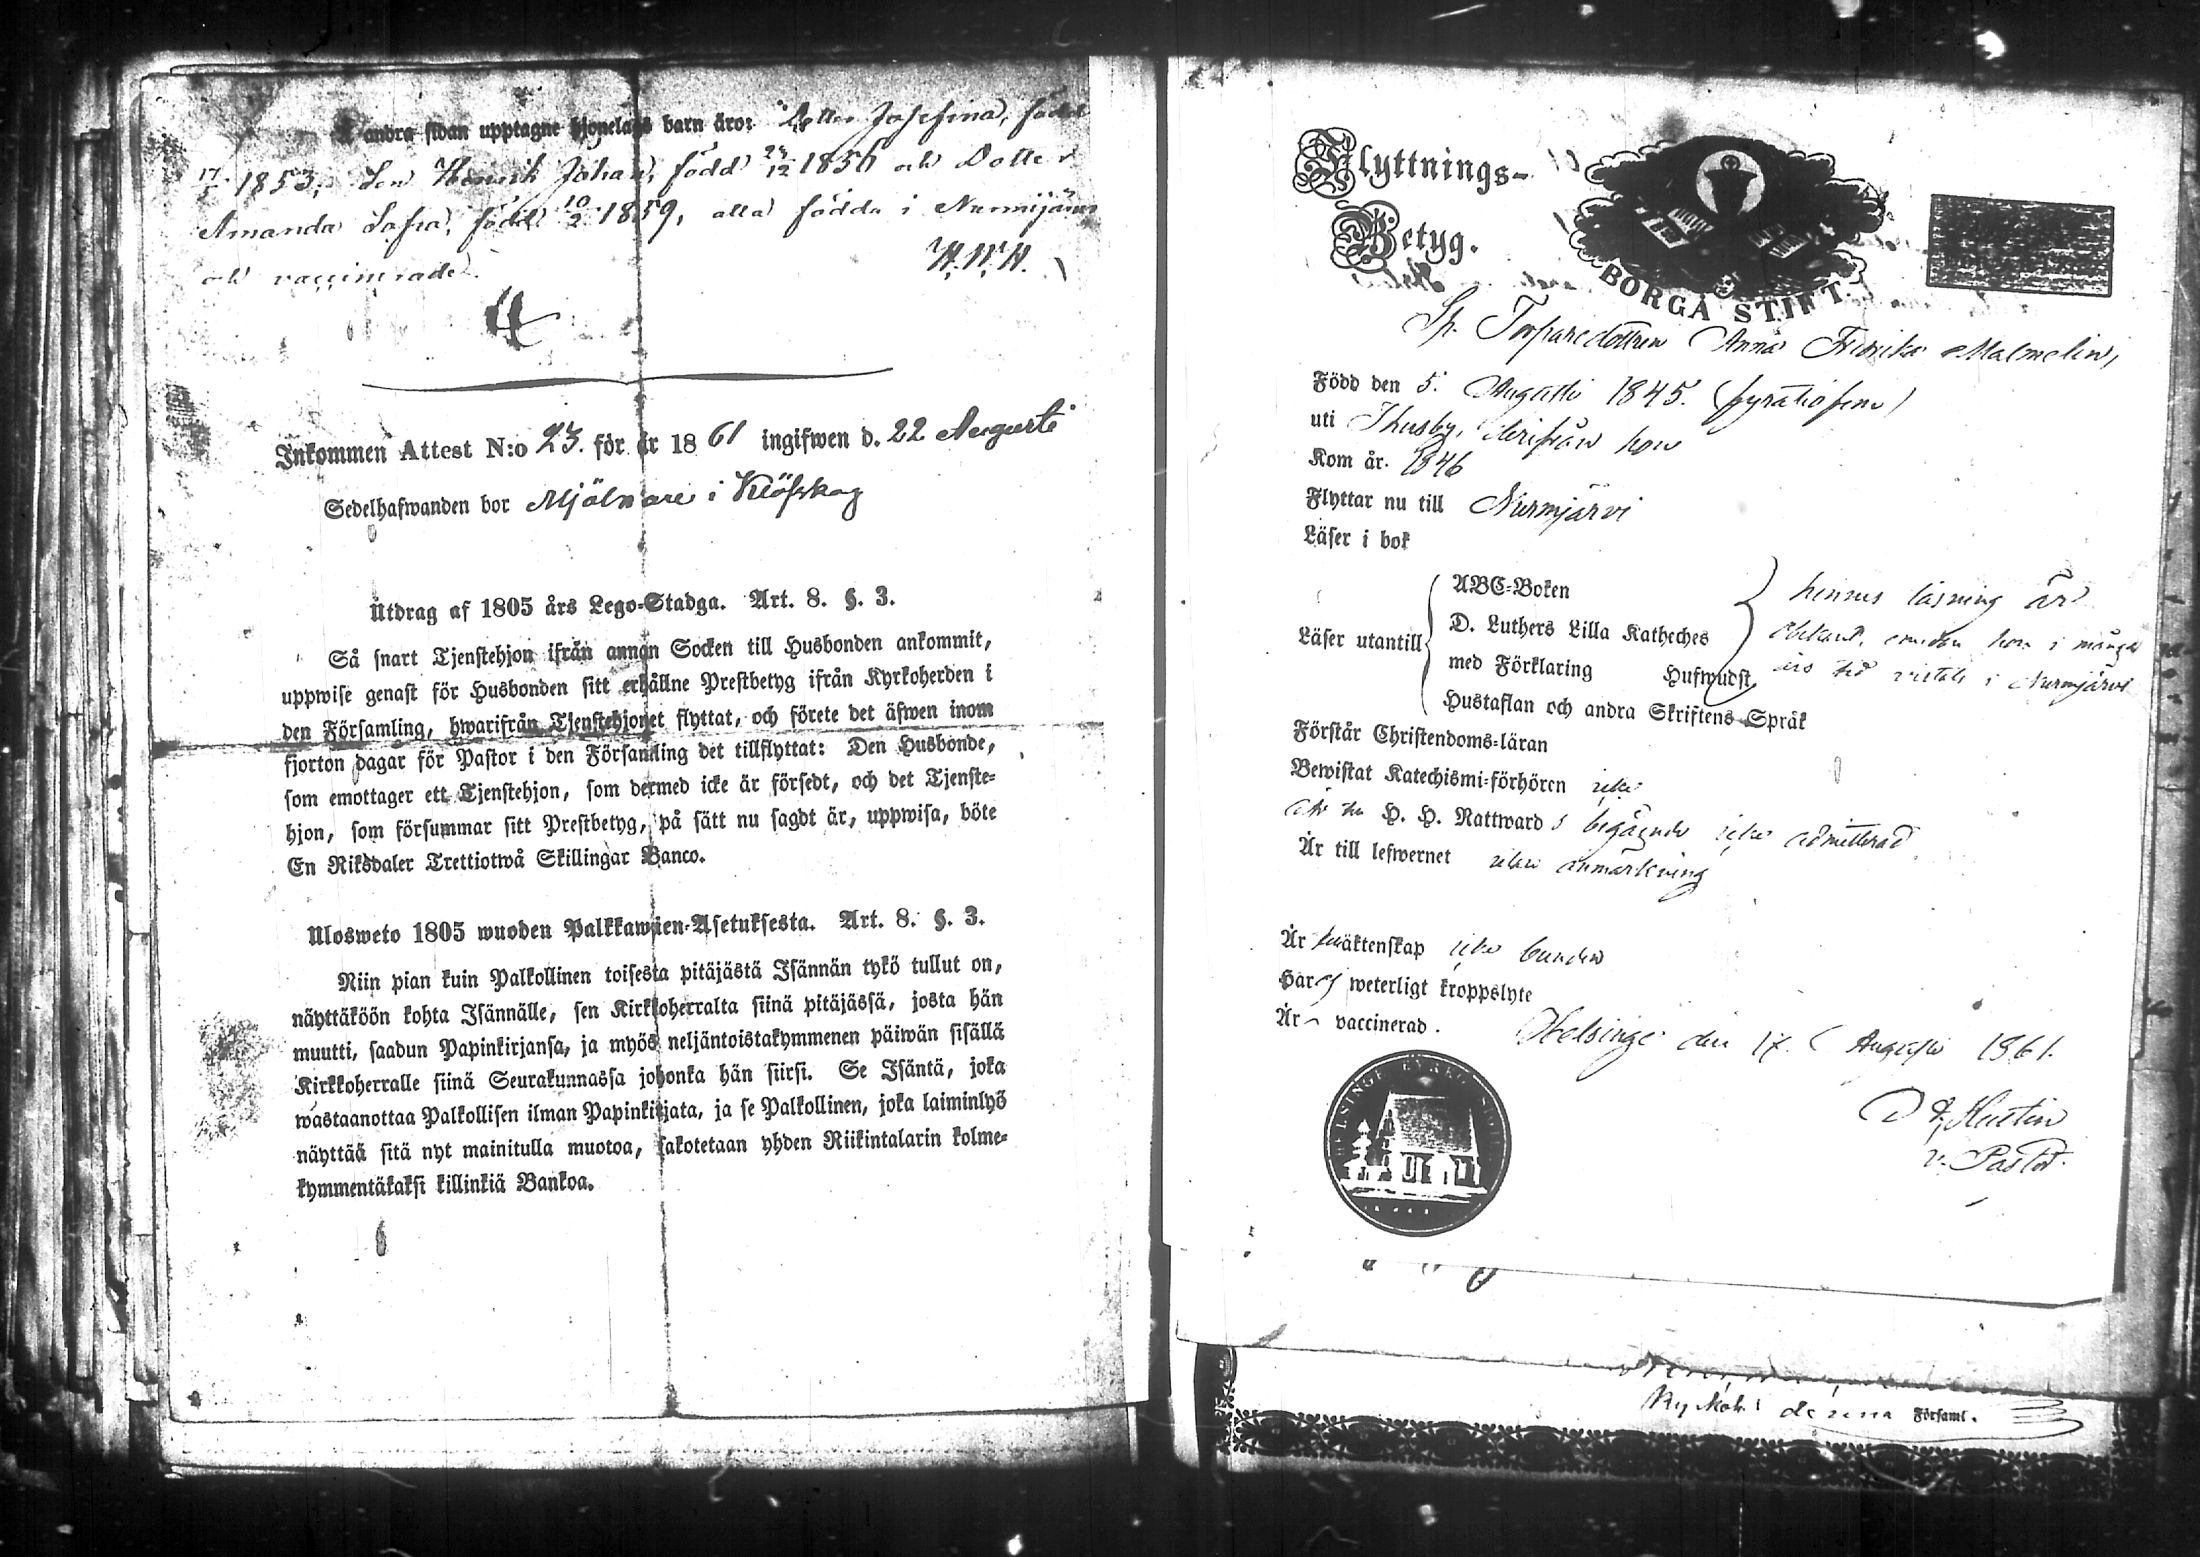 andra sidan upptagne hjonelags barn äro: Dotter Josefina, född
17/5 1853, Son Henrik Johan, född 24/12 1856 och Dotter
Amanda Sofia, född 10/2 1859, alla födda i Nurmijärvi
och vaccinerade.
Inkommen Attest N:o 23. för år 1861 ingifwen d. 22 Augusti
Sedelhafwanden bor Mjölnare i Klöfskog
Utdrag af 1805 års Lego-Stadga. Art. 8. §. 3.
Så snart Tjenstehjon ifrån annan Socken till Husbonden ankommit,
uppwise genast för Husbonden sitt erhållne Prestbetyg ifrån Kyrkoherden i
den Församling, hwarifrån Tjenstehjonet flyttat, och förete det äfwen inom
fjorton dagar för Pastor i den Församling det tillflyttat: Den Husbonde,
som emottager ett Tjenstehjon, som dermed icke är försedt, och det Tjenste-
hjon, som försummar sitt Prestbetyg, på sätt nu sagdt är, uppwisa, böte
En Riksdaler Trettiotwå Skillingar Banco.
Ulosweto 1805 wuoden Palkkawäen-Asetuksesta. Art. 8. §. 3.
Niin pian kuin Palkollinen toisesta pitäjästä Isännän tykö tullut on,
näyttäköön kohta Isännälle, sen Kirkkoherralta siinä pitäjässä, josta hän
muutti, saadun Papinkirjansa, ja myös neljäntoistakymmenen päiwän sisällä
Kirkkoherralle siinä Seurakunnassa johonka hän siirsi. Se Isäntä, joka
wastaanottaa Palkollisen ilman Papinkirjata, ja se Palkollinen, joka laiminlyö
näyttää sitä nyt mainitulla muotoa, sakotetaan yhden Riikintalarin kolme-
kymmentäkaksi killinkiä Bankoa.
Flyttnings-
Betyg.
BORGÅ STIFT.
Torparedottren Anna Fredrika Malmelin,
Född den 5. Augusti 1845. (fyratiofem)
uti Thusby, derifrån hon
Kom år. 1846
Flyttar nu till Nurmjärvi
Läser i bok
ABC-Boken
Läser utantill D. Luthers Lilla Katheches
med Förklaring Hufwudst.
Hustaflan och andra Skriftens Språk
hennes läsning är
obekant, emedan hon i många
års tid vistats i Nurmjärvi
Förstår Christendoms-läran
Bewistat Katechismi-förhören icke
H. H. Nattwards begående icke admitterad
Är till lefwernet utan anmärkning
Är äktenskap icke bunden
Har ej weterligt kroppslyte
Är vaccinerad.
Helsinge den 17. Augusti 1861.
v. Pastor.
HELSINGE KYRKO
denna Församl.